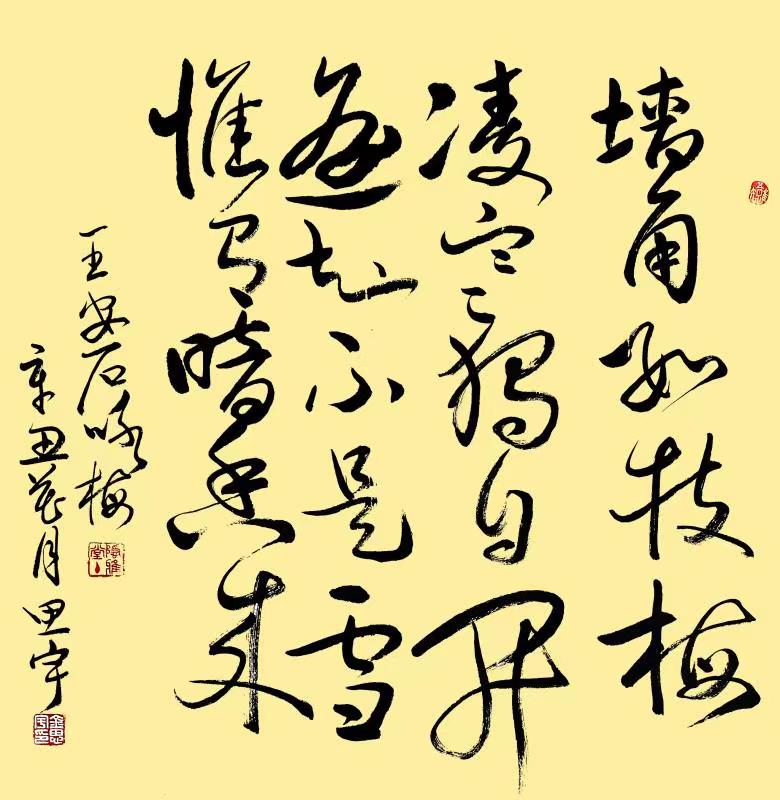 墙角数枝梅
凌寒独自开
遥知不是雪
惟有暗香来
王安石咏梅
辛丑花月思宇